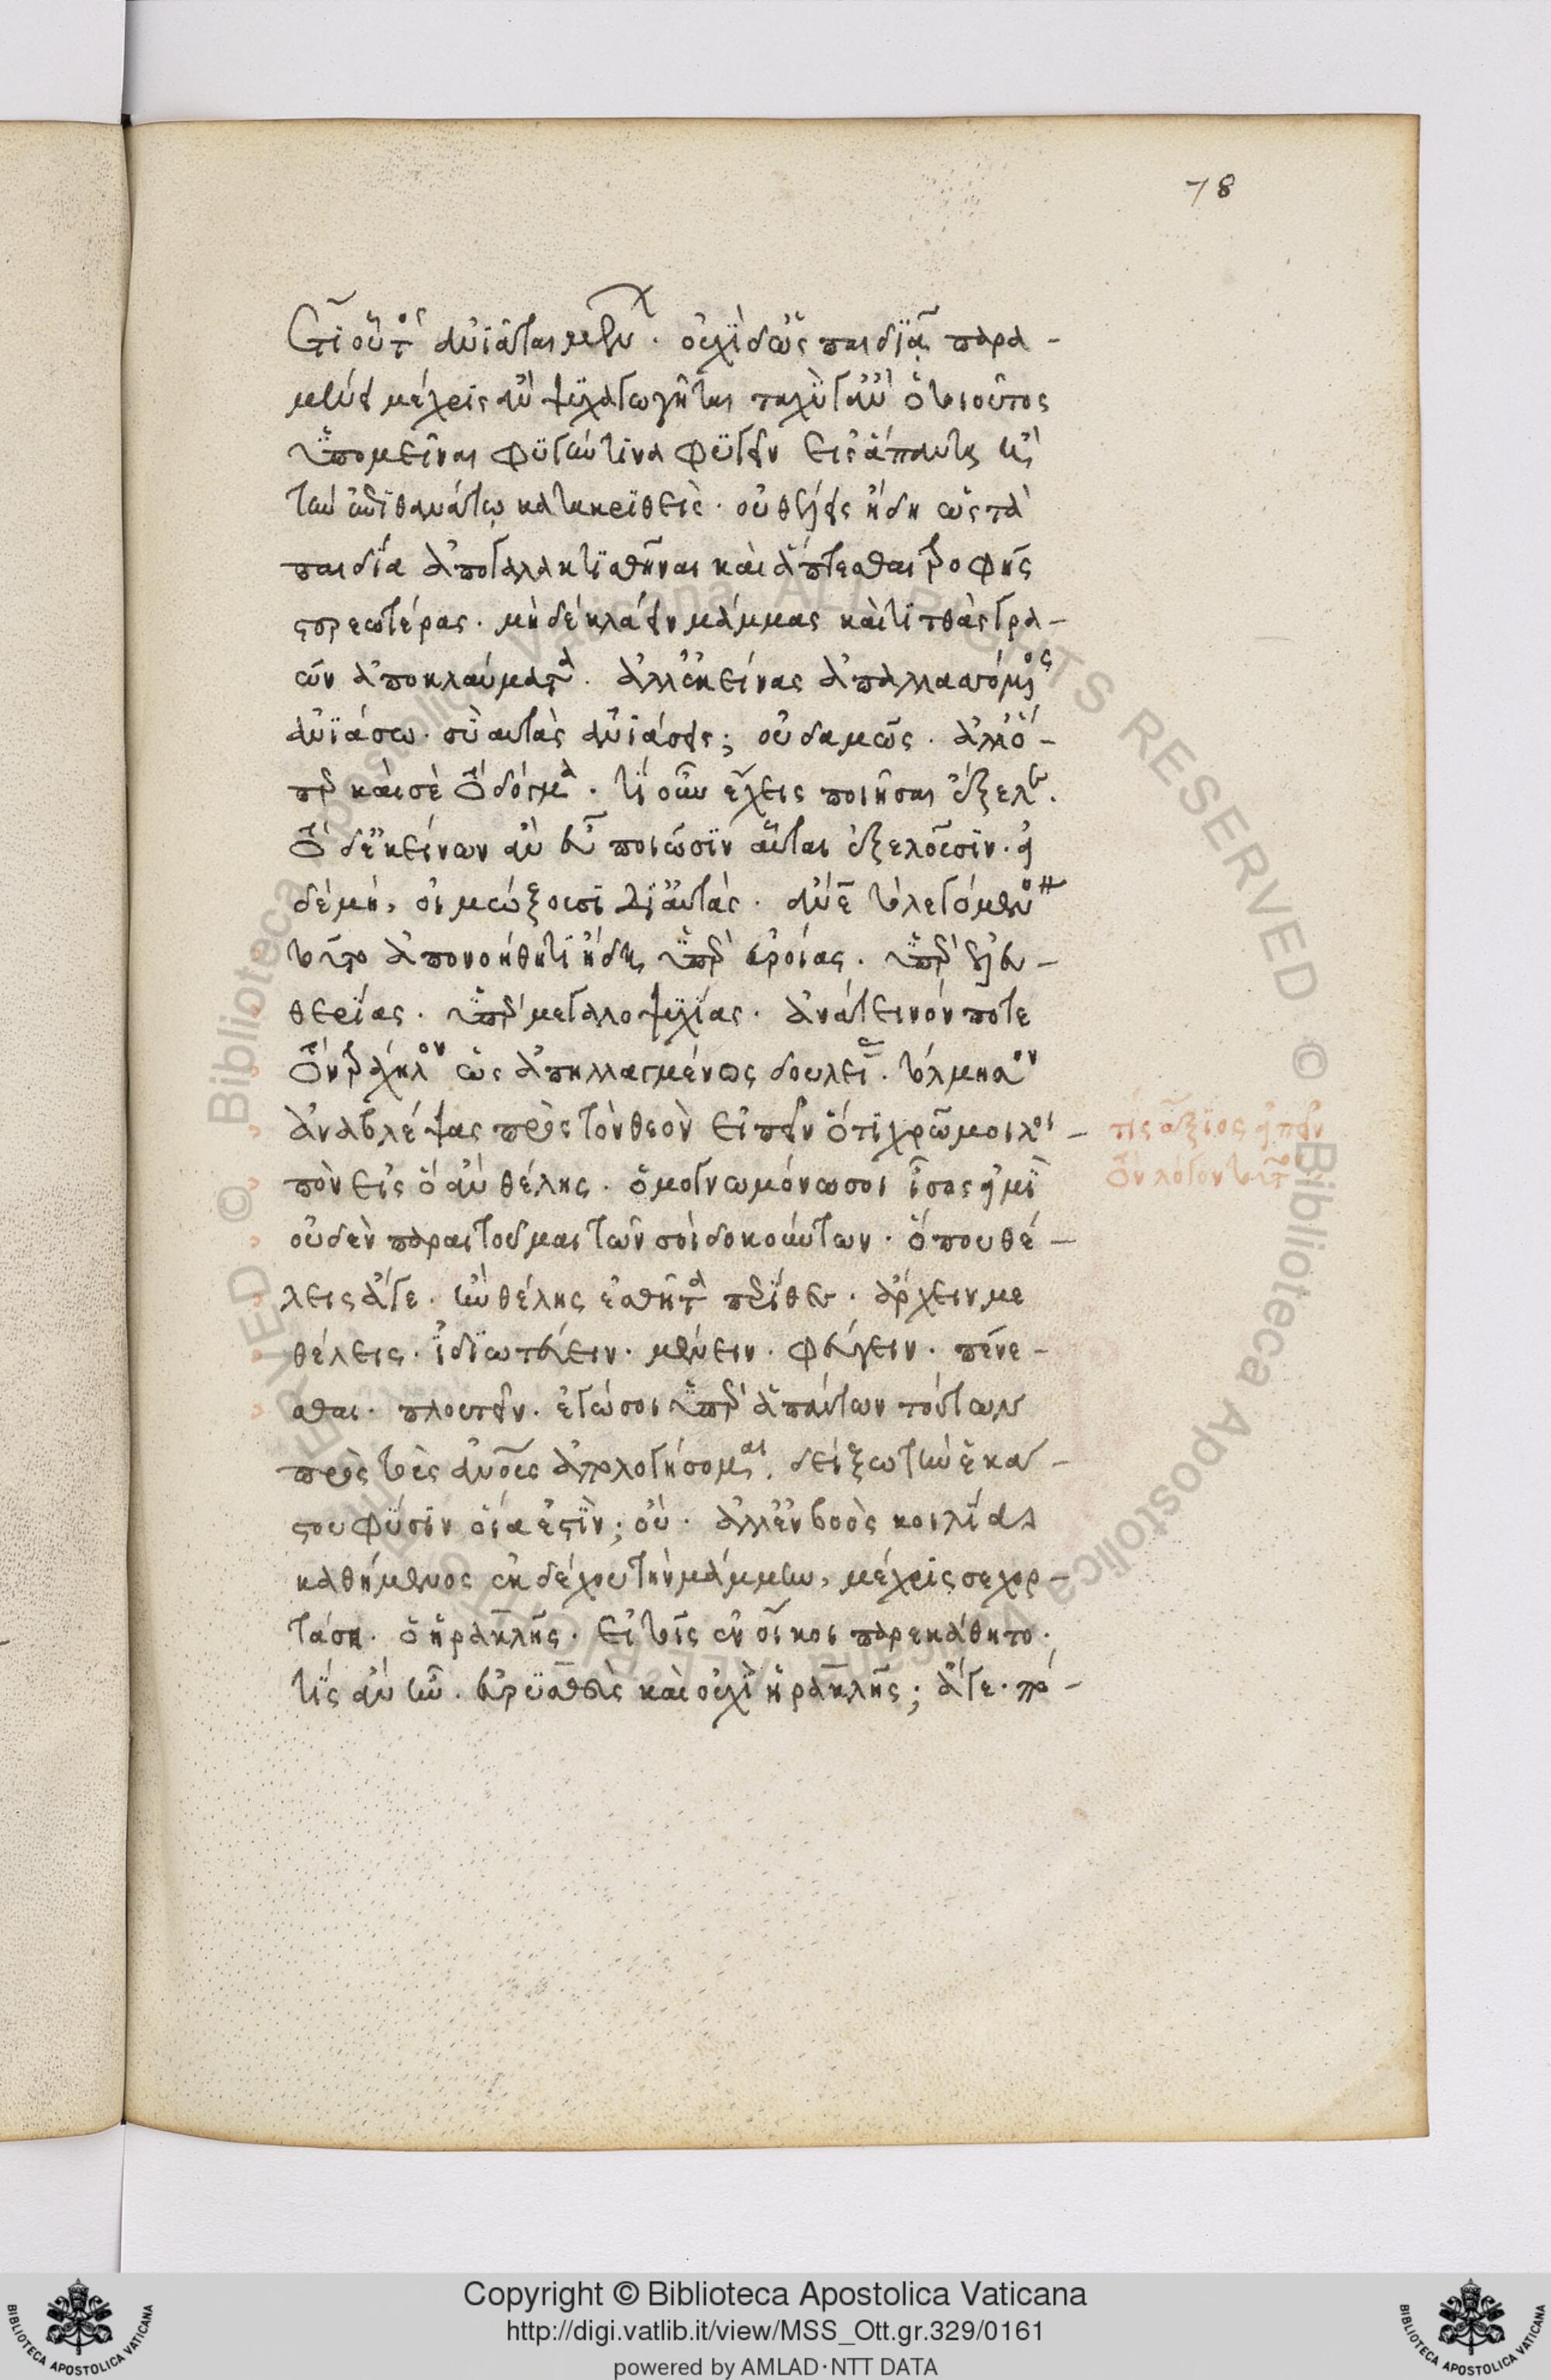 78
ὅτι οὗτος ἀνιᾶται μένων. οὐχὶ δ ὡς παιδία παρα-
μένει μέχρις ἂν ψυχαγωγῆται ταχὺ γ ἂν ὁ τοιοῦτος
ὑπομεῖναι φυγήν τινα φυγεῖν εἰς ἅπαντα ἢ
τὴν ἐπὶ θανάτῳ κατακριθείς. οὐ θέλεις ἤδη ὡς τὰ
παιδία ἀπογαλακτισθῆναι καὶ ἅπτεσθαι τροφῆς
στρεωτέρας. μὴ δὲ κλάειν μάμμας καὶ τιτθὰς γρα-
ῶν ἀποκλαύματα. ἀλλ ἐκείνας ἀπαλλασσόμενος
ἀνιάσω. σὺ αυτὰς ἀνιάσεις; οὐδαμῶς. ἀλλ ὅ-
περ καὶ σὲ τὸ δόγμα. τί οὖν ἔχεις ποιῆσαι ἔξελε.
τὸ δ ἐκείνων ἂν εὖ ποιῶσιν αὗται ἐξελοῦσιν. εἰ
δὲ μή, οἰμώξουσι δι αὐτάς. ἄνε τὸ λεγόμενον
τοῦτο ἀπονοήθητι ἤδη ὑπὲρ εὐροίας. ὑπὲρ ἐλευ-
θερίας. ὑπὲρ μεγαλοψυχίας. ἀνάτεινόν ποτε
τὸν τράχηλον ὡς ἀπηλλαγμένος δουλείας. τόλμησον
ἀναβλέψας πρὸς τὸν θεὸν εἰπεῖν ὅτι χρῶ μοι λοι-
πὸν εἰς ὃ ἂν θέλης. ὁμογνωμόνω σοι ἴσος εἰμὶ
οὐδὲν παραιτοῦμαι τῶν σοὶ δοκούντων. ὅπου θέ-
λεις ἄγε. ἣν θέλης ἐσθῆτα περίθες. ἄρχειν με
θέλεις. ἰδιωτεύειν. μένειν. φεύγειν. πένε-
σθαι. πλουτεῖν. ἐγώ σοι ὑπὲρ ἁπάντων τούτων
πρὸς τοὺς ἀνους ἀπολογήσομαι. δείξω τὴν ἑκάσ-
του φύσιν οἵα ἐστὶν; οὐ. ἀλλ ἐν βοὸς κοιλίᾳ
καθήμενος ἐκδέχου τὴν μάμμην, μέχρις σε χορ-
τάση. ὁ ἡρακλῆς. εἰ τοῖς ἐν οἴκοι παρεκάθητο.
τίς ἂν ἦν. εὐρυσθεὺς καὶ οὐχὶ ἡρακλῆς; ἄγε. πό-
τίς ἄξιος εἰπεῖν
τὸν λόγον τοῦτον
Copyright © Biblioteca Apostolica Vaticana
http://digi.vatlib.it/view/MSS_Ott.gr.329/0161
powered by AMLAD·NTT DATA
BIBLIOTECA APOSTOLICA VATICANA
BIBLIOTECA APOSTOLICA VATICANA